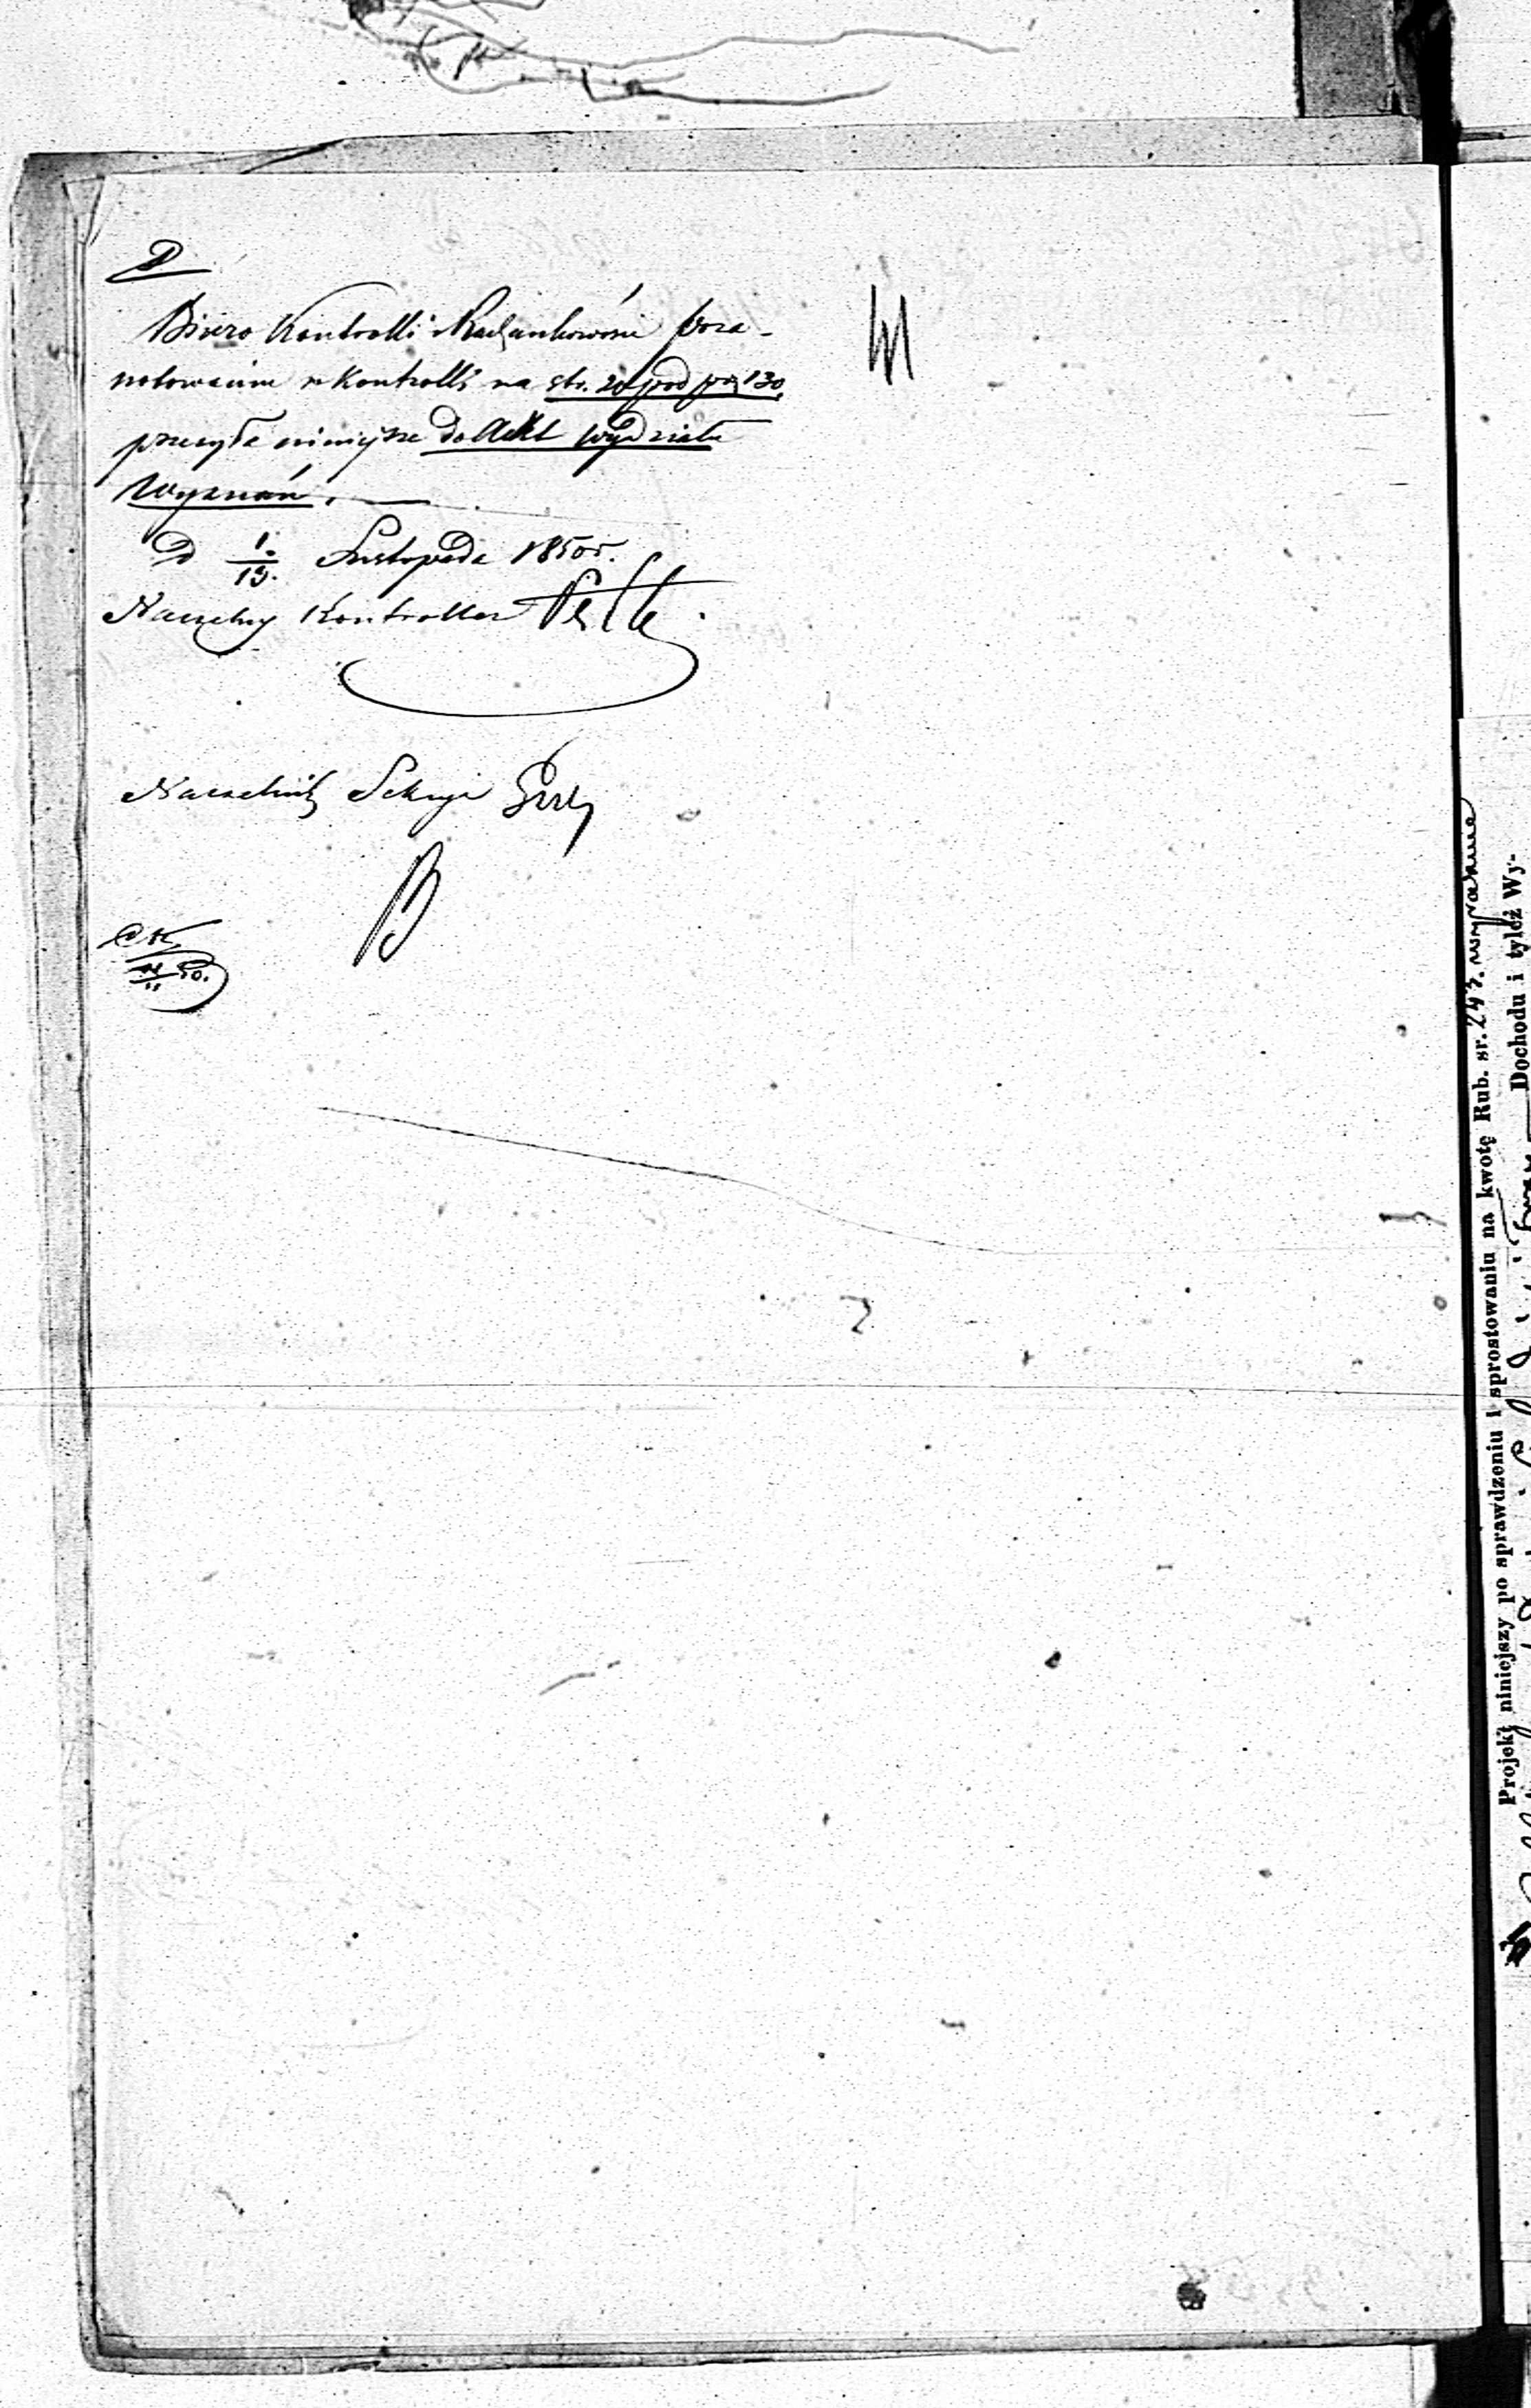 D
Biuro Kontrolli i Rachunkowości po za-
notowaniu w Kontrolli na str. 20 pod poz 130.
przesyła niniejsze do Akt Wydziału
Wyznań.
D 1./13. Listopada 1850 r.
Naczelny Kontroller
Naczelnik Sekcyi
Projekt niniejszy po sprawdzeniu i sprostowaniu na kwotę Rub. sr. 243. wyraźnie
Dochodu i tyleż Wy-